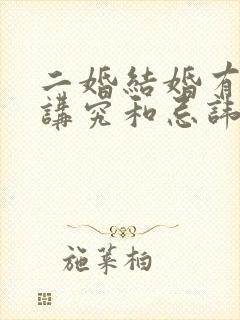 二婚結婚有
講究和忌諱
施萊柏